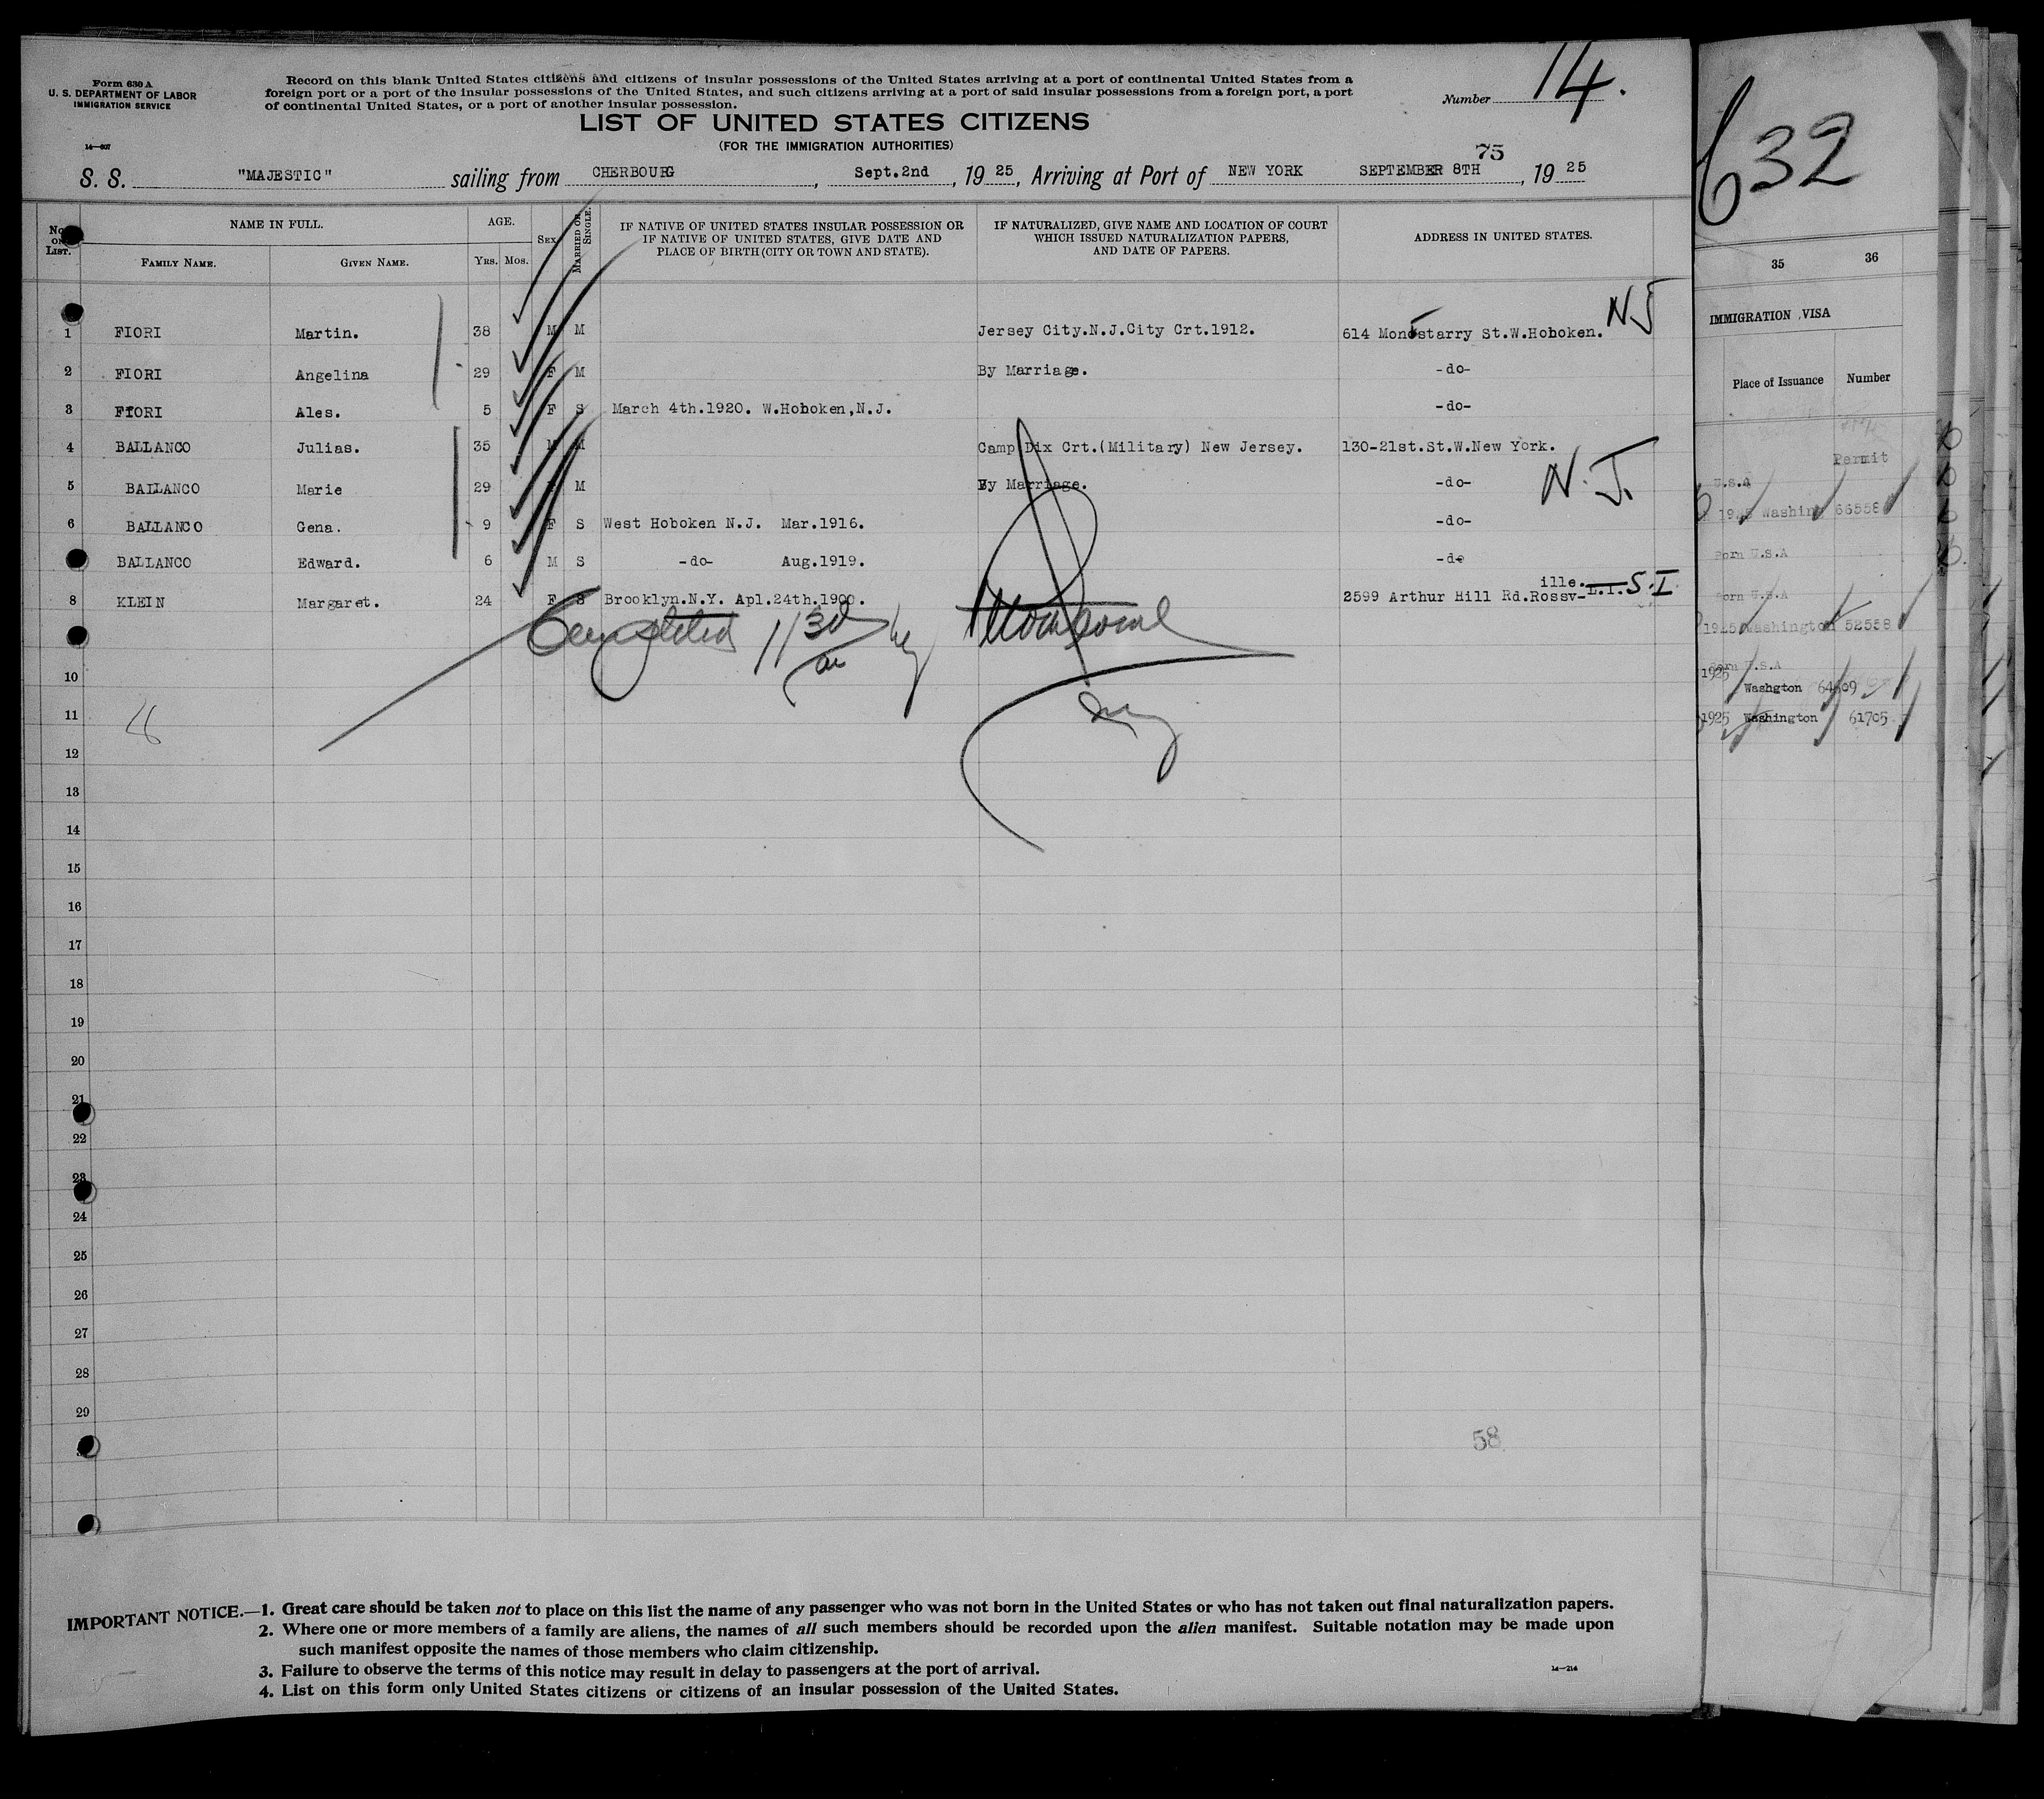 Form 630 A
U. S. DEPARTMENT OF LABOR
IMMIGRATION SERVICE
14—607
Record on this blank United States citizens and citizens of insular possessions of the United States arriving at a port of continental United States from a
foreign port or a port of the insular possessions of the United States, and such citizens arriving at a port of said insular possessions from a foreign port, a port
of continental United States, or a port of another insular possession.
Number 14.
LIST OF UNITED STATES CITIZENS
(FOR THE IMMIGRATION AUTHORITIES)
75
S. S. "MAJESTIC" sailing from CHERBOURG, Sept.2nd, 19 25, Arriving at Port of NEW YORK SEPTEMBER 8TH, 19 25
No. on List. NAME IN FULL. AGE. Sex. Married or Single. IF NATIVE OF UNITED STATES INSULAR POSSESSION OR IF NATIVE OF UNITED STATES, GIVE DATE AND PLACE OF BIRTH (CITY OR TOWN AND STATE). IF NATURALIZED, GIVE NAME AND LOCATION OF COURT WHICH ISSUED NATURALIZATION PAPERS, AND DATE OF PAPERS. ADDRESS IN UNITED STATES.
Family Name. Given Name. Yrs. Mos.
1 FIORI Martin. 38 M M Jersey City.N.J.City Crt.1912. 614 Monostarry St.W.Hoboken. NJ
2 FIORI Angelina 29 F M By Marriage. -do-
3 FIORI Ales. 5 F S March 4th.1920. W.Hoboken,N.J. -do-
4 BALLANCO Julias. 35 M M Camp Dix Crt.(Military) New Jersey. 130-21st.St.W.New York.
5 BALLANCO Marie 29 M By Marriage. -do- N.J.
6 BALLANCO Gena. 9 F S West Hoboken N.J. Mar.1916. -do-
BALLANCO Edward. 6 M S -do- Aug.1919. -do-
8 KLEIN Margaret. 24 F S Brooklyn.N.Y. Apl.24th.1900. 2599 Arthur Hill Rd.Rossv-ille. L.I. S.I
Completed 1/3d by
10
11
12
13
14
15
16
17
18
19
20
21
22
23
24
25
26
27
28
29
58
IMPORTANT NOTICE.—1. Great care should be taken not to place on this list the name of any passenger who was not born in the United States or who has not taken out final naturalization papers.
2. Where one or more members of a family are aliens, the names of all such members should be recorded upon the alien manifest. Suitable notation may be made upon
such manifest opposite the names of those members who claim citizenship.
3. Failure to observe the terms of this notice may result in delay to passengers at the port of arrival.
14—214
4. List on this form only United States citizens or citizens of an insular possession of the United States.
632
35 36
IMMIGRATION VISA
Place of Issuance Number
Permit
U.S.A
Washing 66558
Born U.S.A
Born U.S.A
1925 Washington 52558
Born U.S.A
1925
Washgton
1925 Washington 61705